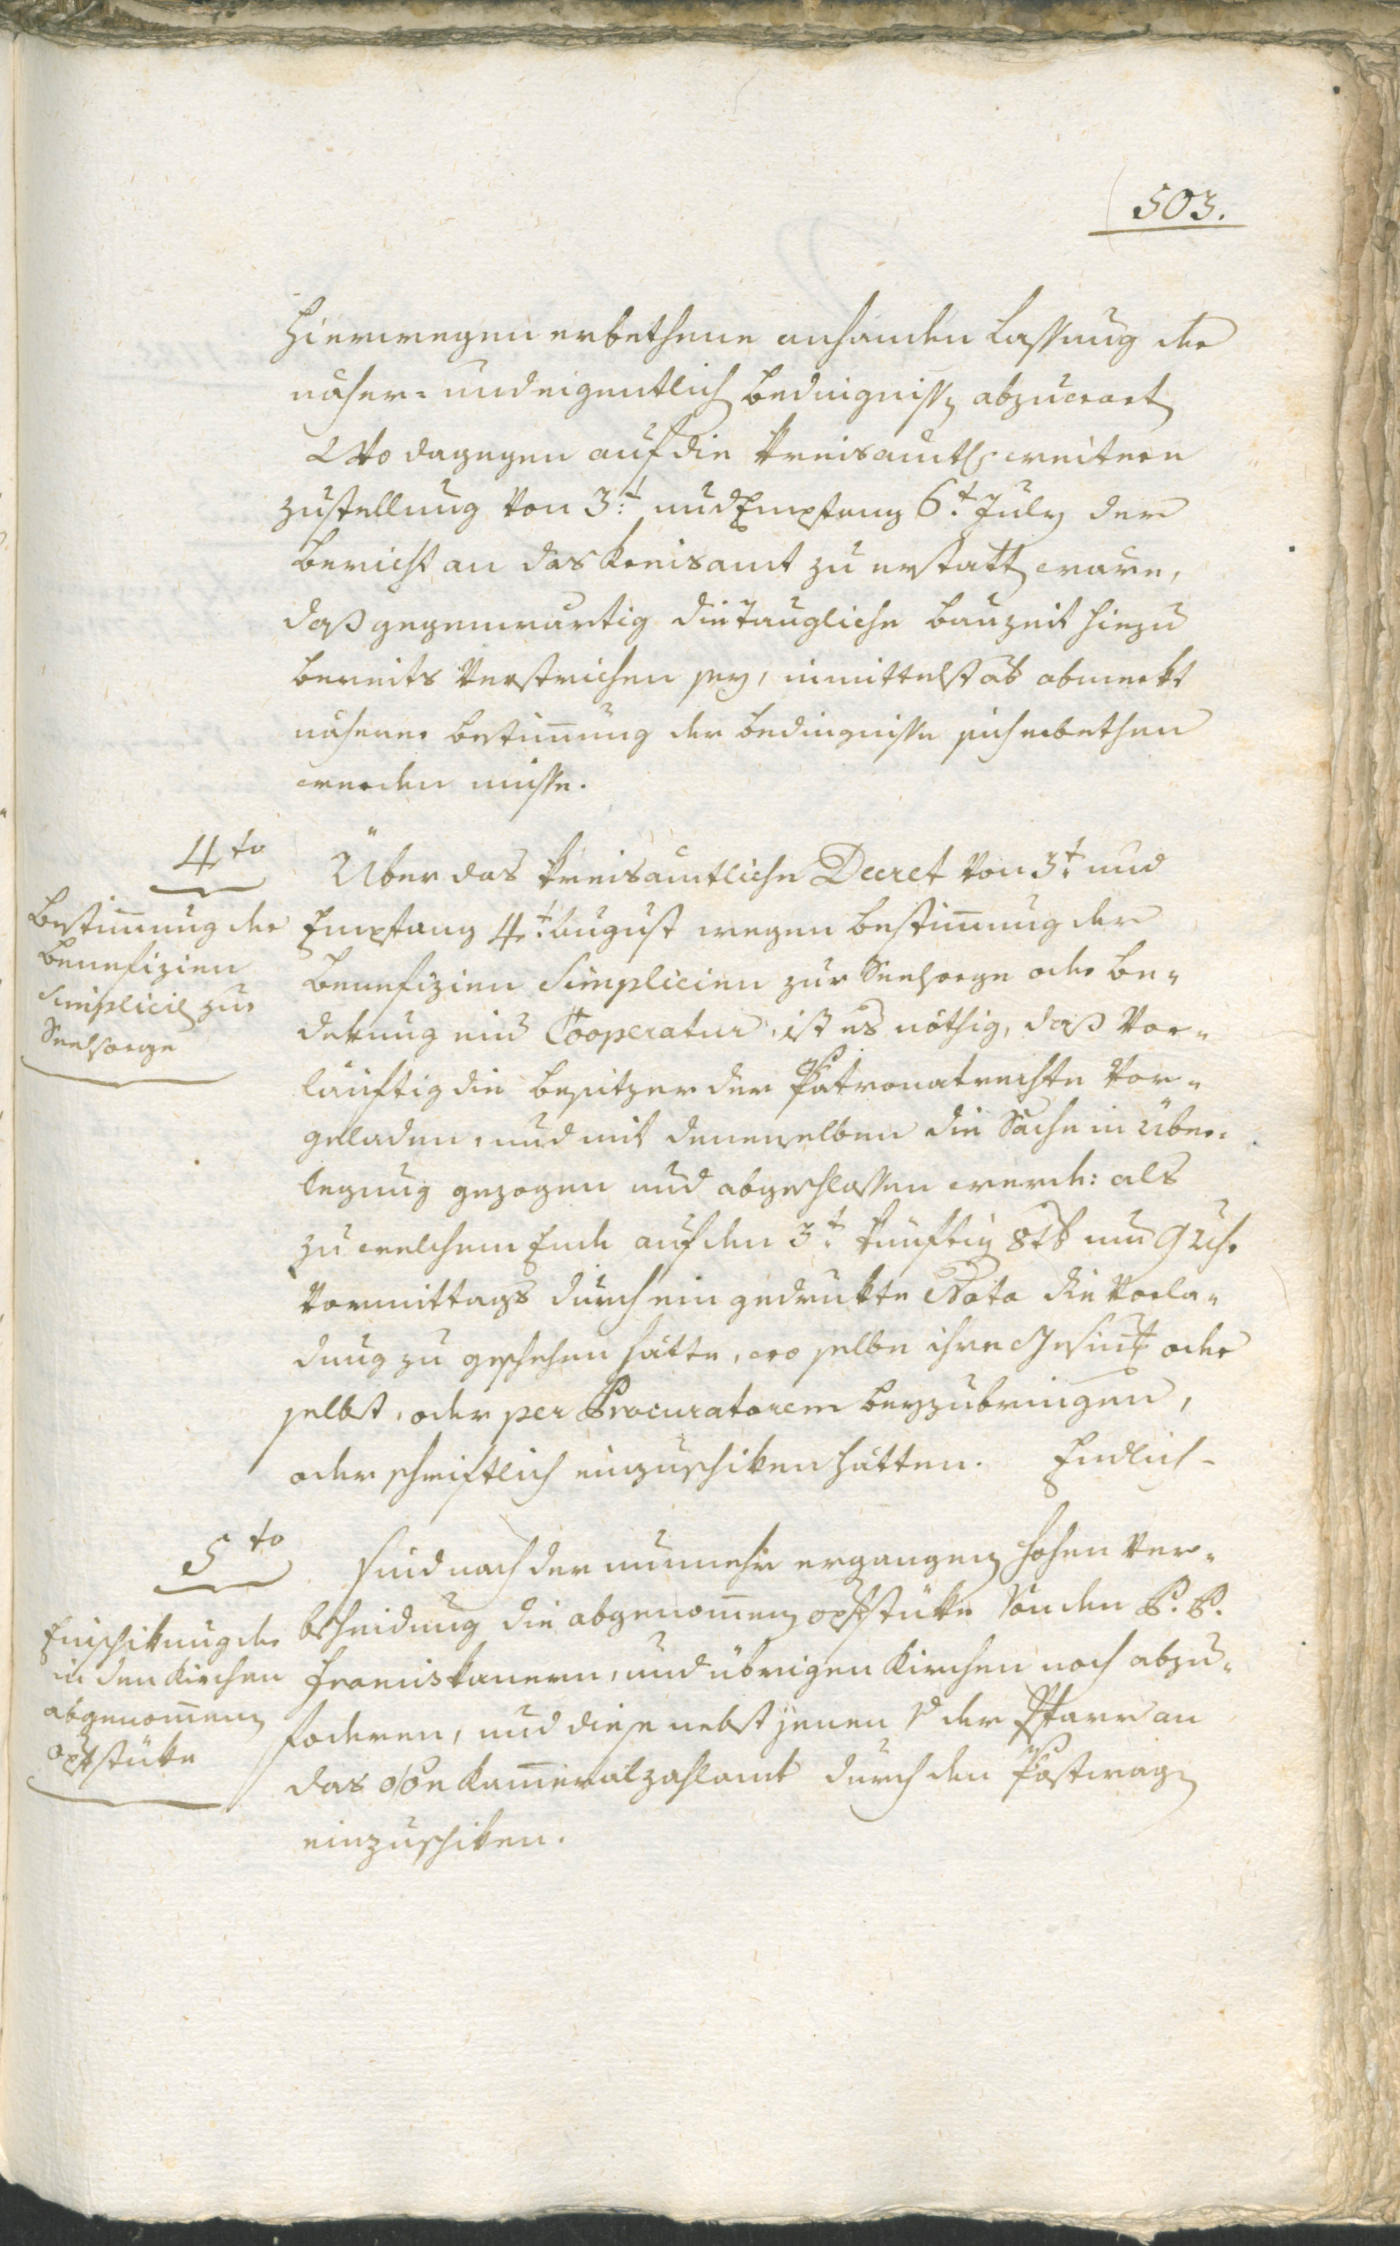 503.
hierwegen erbethene anhanden Lassung der
näher- und eigentlich bedingnissen abzuwart
Wo dagegen auf die kreisamtl. weitere
zustellung von 3:t und Empfang 6.t July der
bericht an das kreisamt zu erstatten wäre,
daß gegenwärtig die taugliche bauzeit hiezu
bereits verstrichen sey, inmittelst ab
näherer bestimung der bedingnisse sich erbethen
werden müsse.
4to
Bestimung der
Benefizien
Simplicien zur
Seelsorge
Über das kreisamtliche Decret von 3.t und
Empfang 4.t August wegen bestimung der
Benefizien Simplicien zur Seelsorge oder be-
dekung eins Cooperatur, ist es nöthig, daß vor-
läuftig die besitzer der Patronatrechte vor-
geladen, und mit denenselben die Sache in über-
legung gezogen und abgeschlossen werde: als
zu welchem Ende auf den 3.t künftig 8tb um 9 Uhr
vormittags durch ein gedrukte Nota die vorla-
dung zu geschehen hätte, wo selbe ihre Gesinn oder
selbst, oder per Procuratorem beyzubringen,
oder schriftlich einzuschiken hätten. Endlich-
5to
Einschikung der
in den Kirchen
abgenomenen
opferstüke
sind nach der nunmehr ergangenen hohen ver-
bscheidung die abgenomenen opferstüke von den P. P.
Franciskanern, und übrigen Kirchen noch abzu-
foderen, und diese nebst jenen der Pfarr an
das kameralzahlamt durch den Postwagen
einzuschiken.